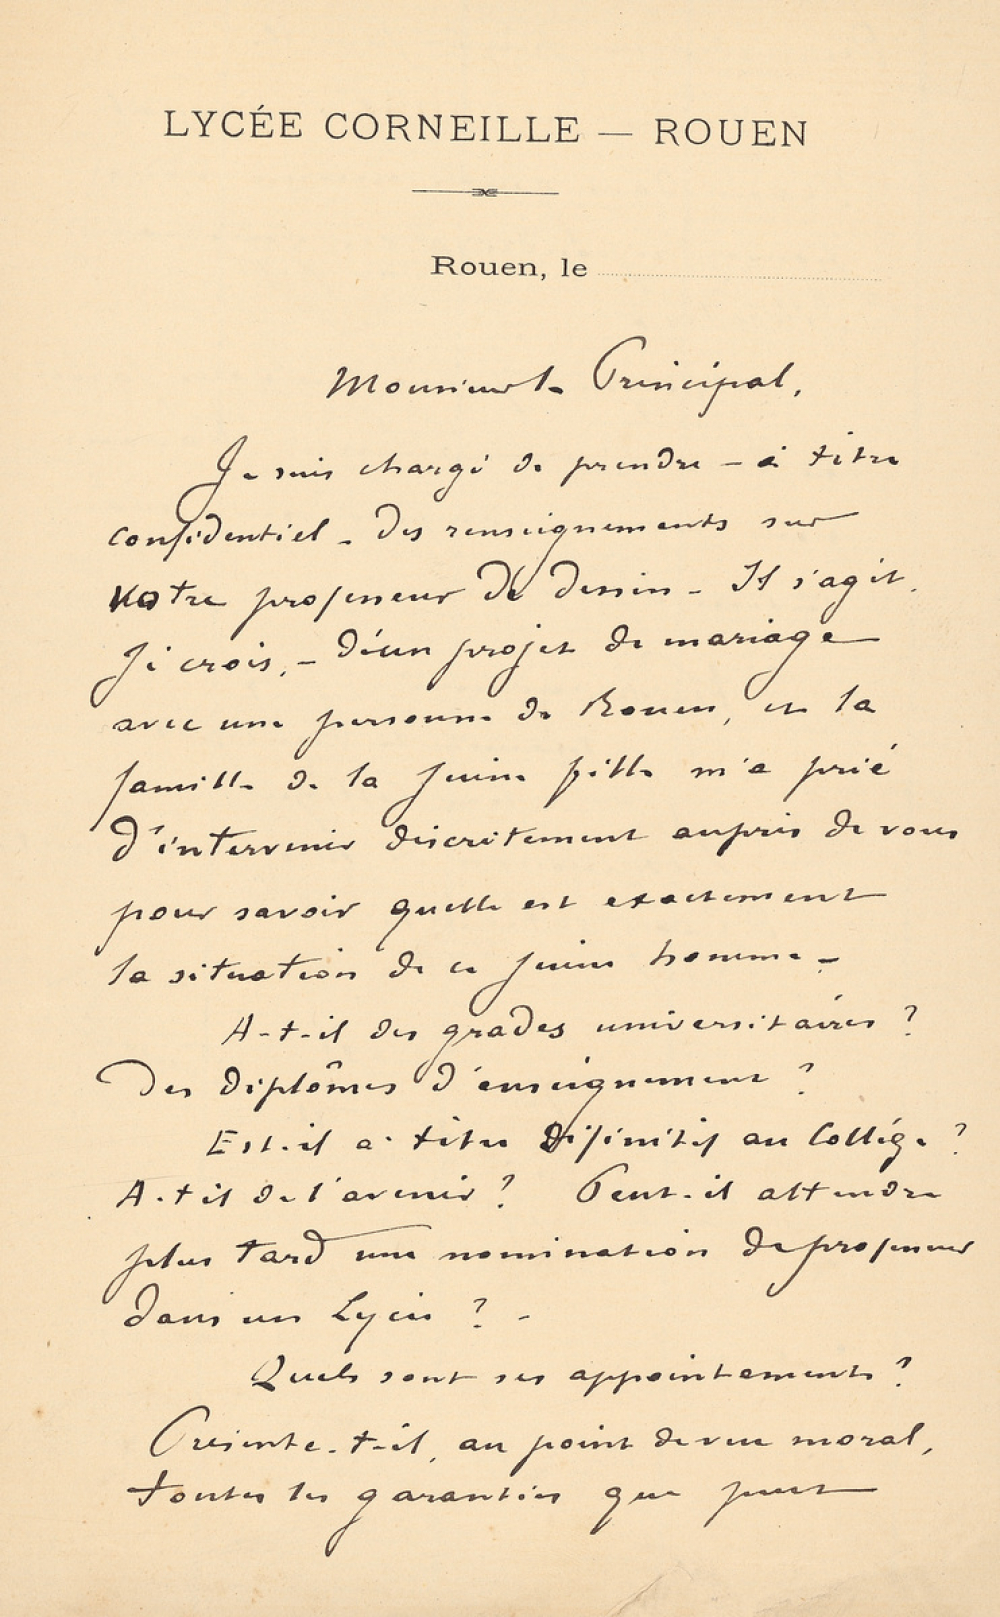 LYCÉE CORNEILLE — ROUEN
Rouen, le
Monsieur le Principal,
Je suis chargé de prendre – à titre
confidentiel – des renseignements sur
votre professeur de dessin – Il s'agit,
je crois, – d'un projet de mariage
avec une personne de Rouen, et la
famille de la jeune fille m'a prié
d'intervenir discrètement auprès de vous
pour savoir quelle est exactement
la situation de ce jeune homme –
A-t-il des grades universitaires ?
Des diplômes d'enseignement ?
Est-il à titre définitif au Collège ?
A-t il de l'avenir ? Peut-il attendre
plus tard une nomination de professeur
dans un Lycée ? –
Quels sont ses appointements ?
Présente-t-il, au point de vue moral,
toutes les garanties que peut